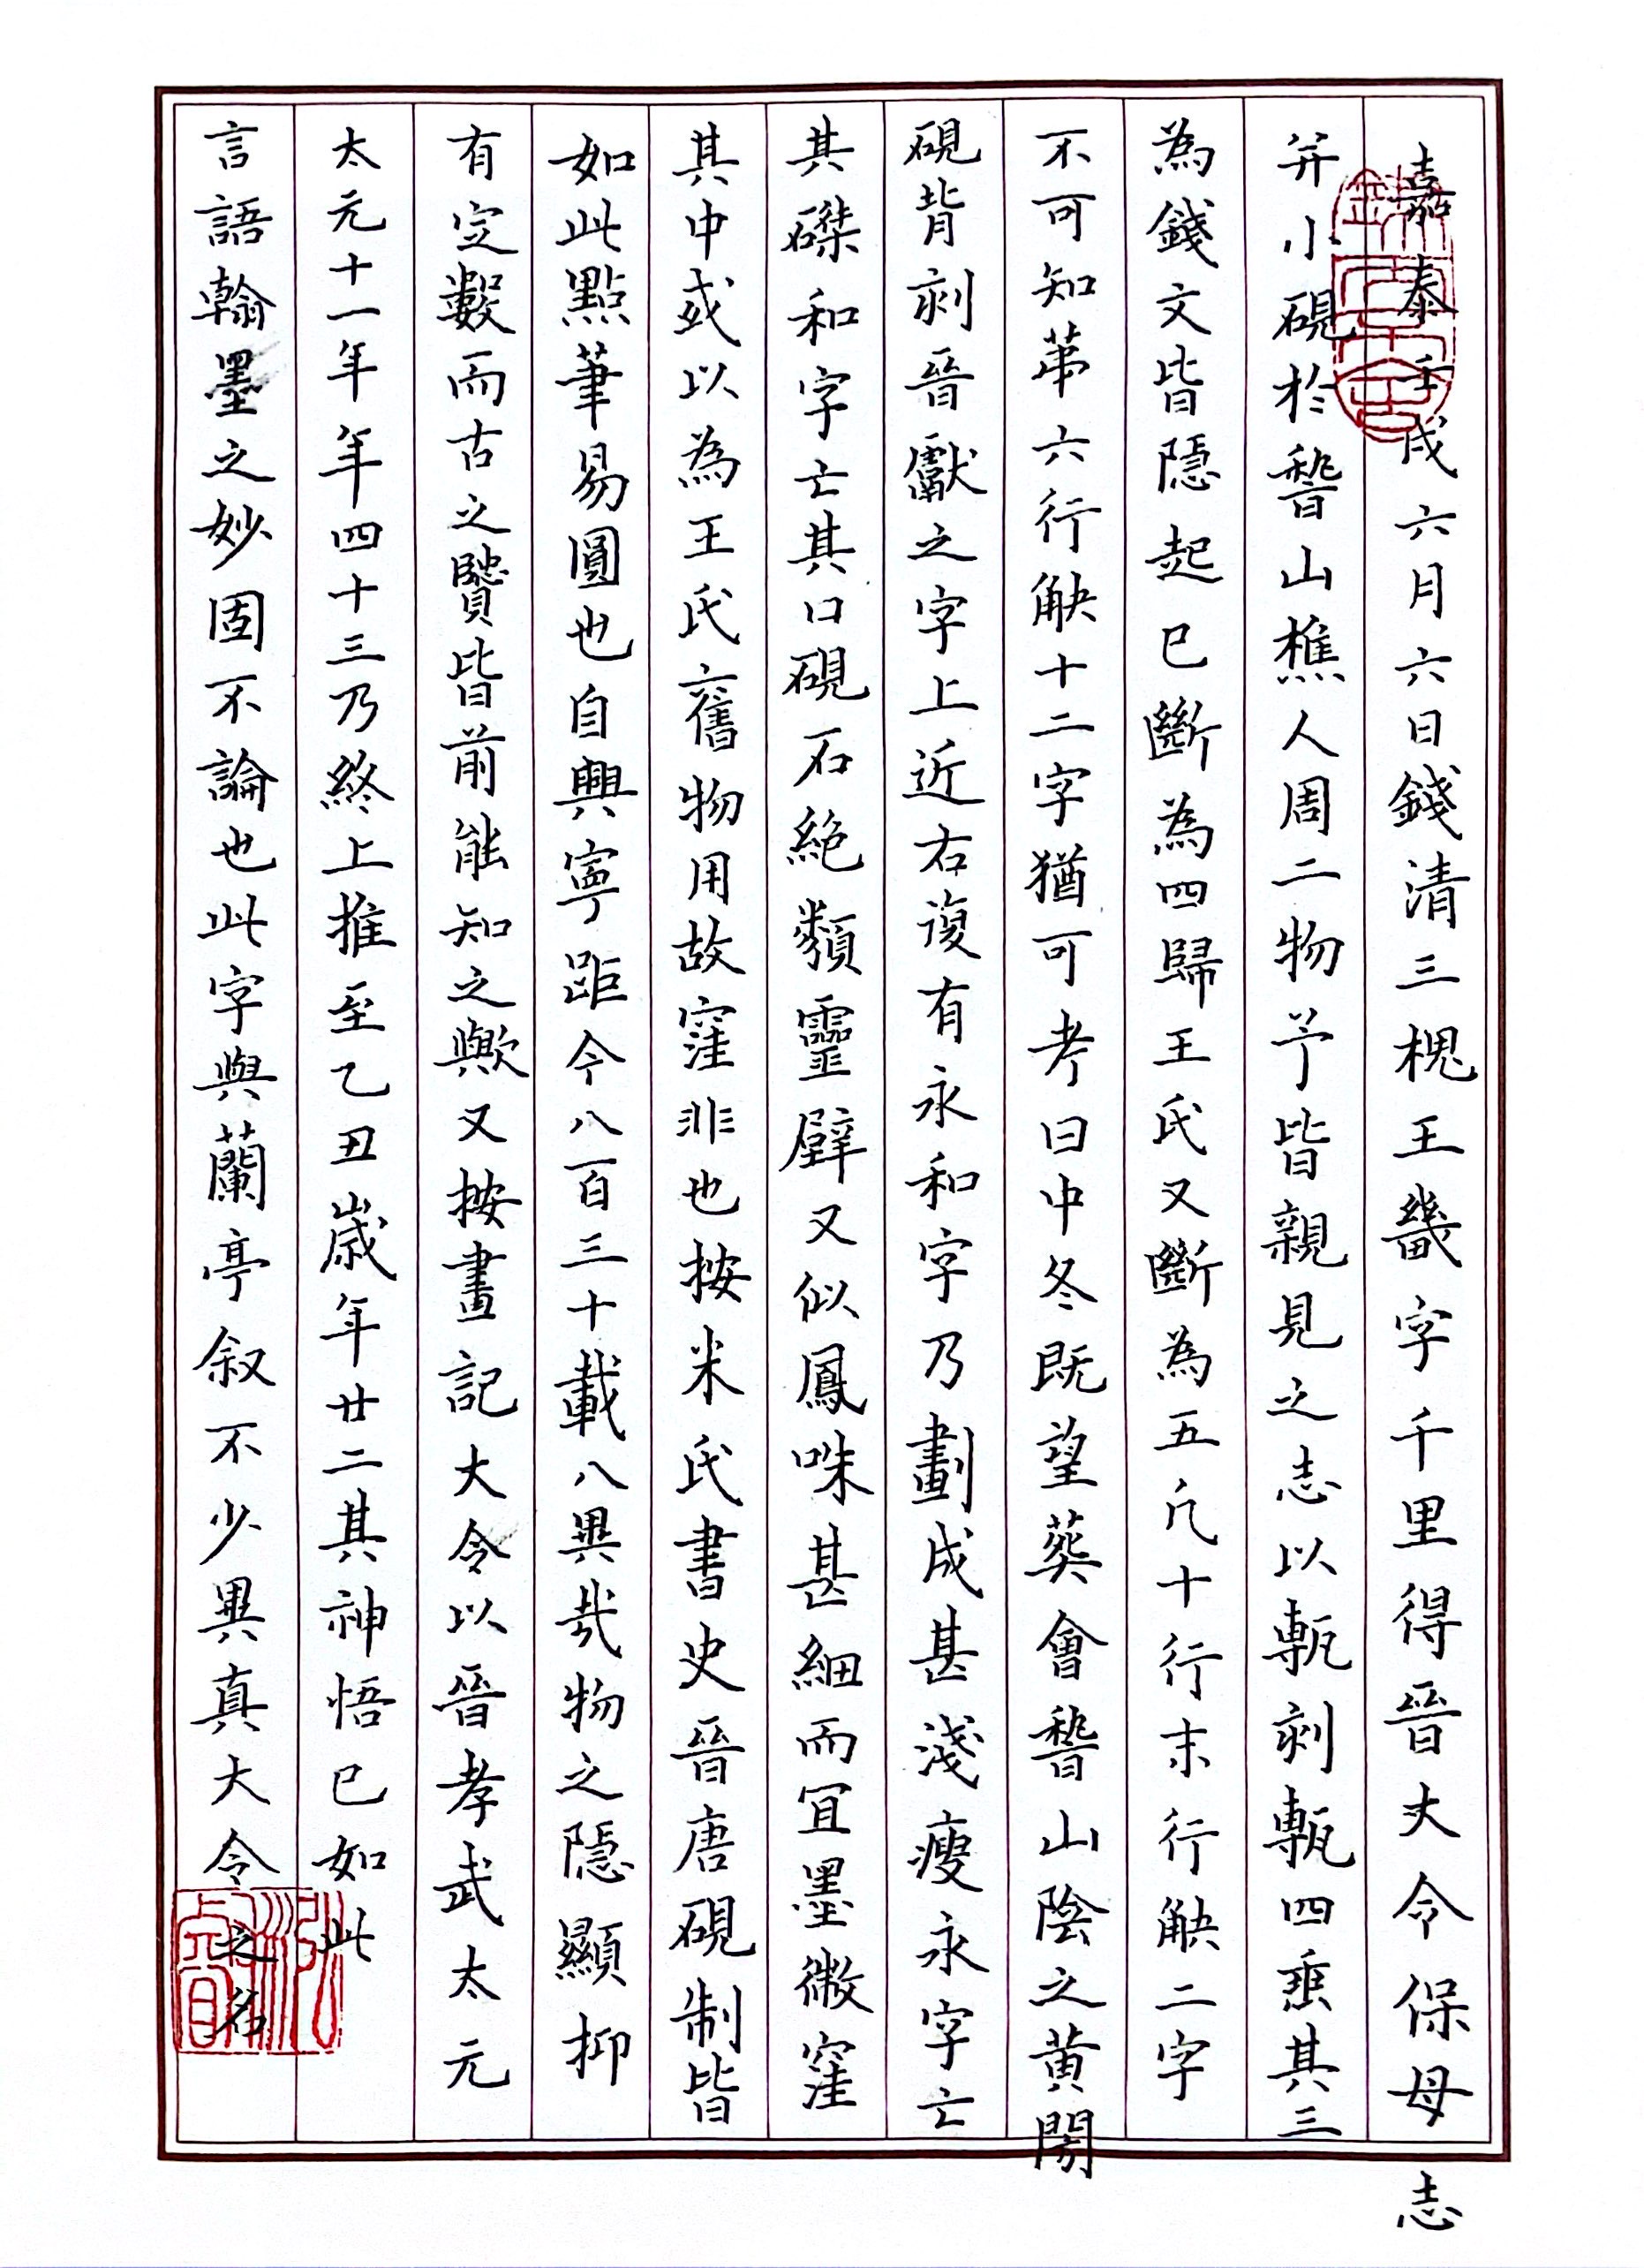 嘉泰壬戌六月六日錢清三槐王畿字千里得晉大令保母志
并小硯於稽山樵人周二物予皆親見之志以甎刻甎四垂其三
為錢文皆隱起已斷為四歸王氏又斷為五凡十行末行缺二字
不可知第六行缺十二字猶可考曰中冬既望葬會稽山陰之黃閍
硯背刻晉獻之字上近右復有永和字乃劃成甚淺瘦永字亡
其磔和字亡其口硯石絕類靈壁又似鳳咮甚細而宜墨微窪
其中或以為王氏舊物用故窪非也按米氏書史晉唐硯制皆
如此點筆易圓也自興寧距今八百三十載八異哉物之隱顯抑
有定數而古之贒皆前能知之歟又按畫記大令以晉孝武太元
太元十一年年四十三乃終上推至乙丑歲年廿二其神悟已如此
言語翰墨之妙固不論也此字與蘭亭叙不少異真大令之名